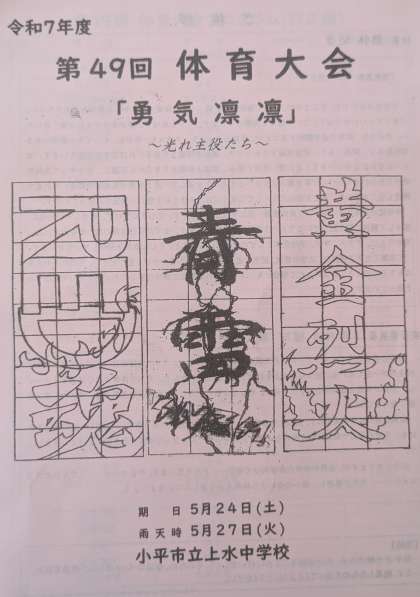 令和7年度
第49回 体育大会
「勇気凛凛」
～光れ主役たち～
魂
青
黄金烈火
期 日 5月24日(土)
雨天時 5月27日(火)
小平市立上水中学校